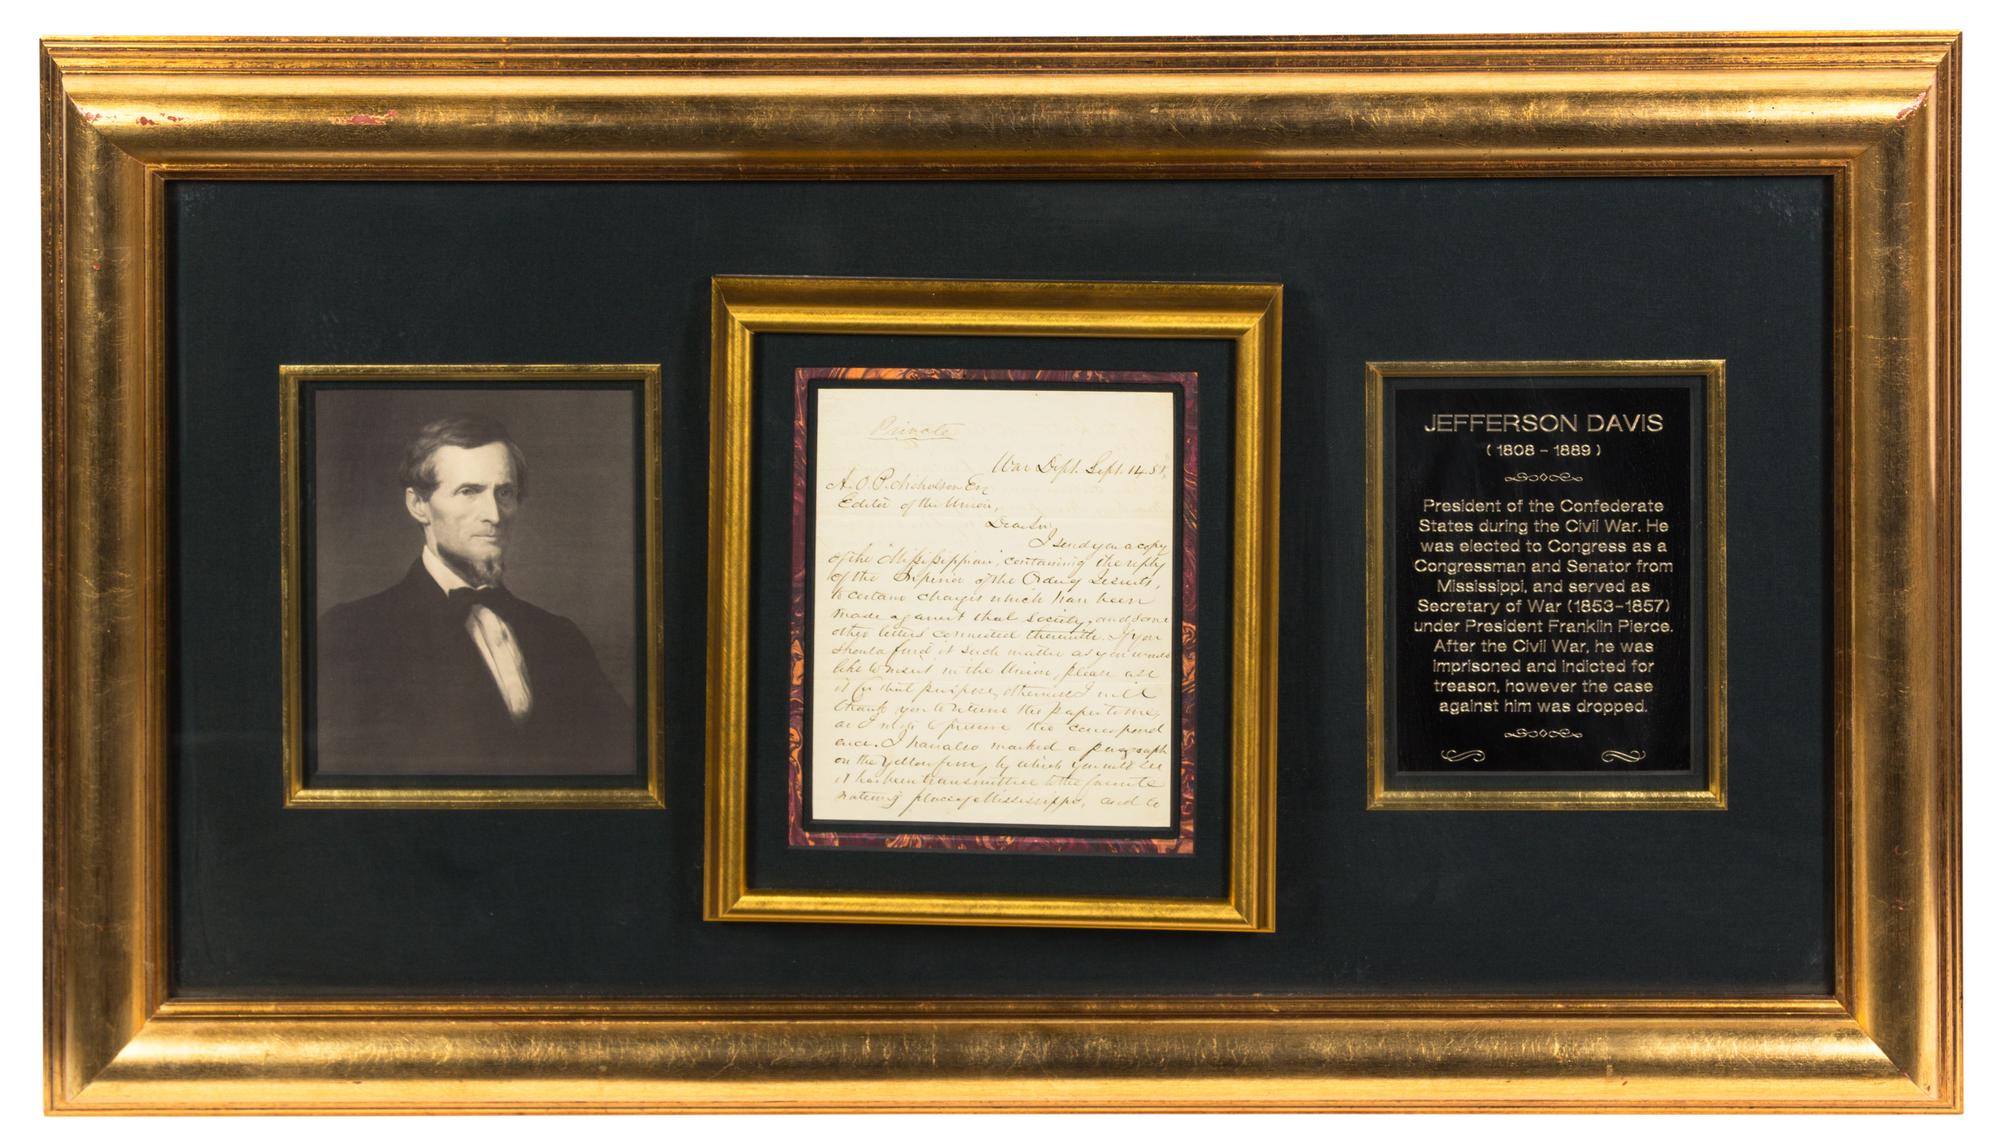 Private
War Dept. Sept. 14.
A. O. P. Nicholson Esq
Editor of the Union,
Dear Sir,
I send you a copy
of the "Mississippian", containing the reply
of the Superior of the Order of Jesuits,
to certain charges which have been
made against that Society, and some
other letters connected therewith. If you
should find it such matter as you would
like to insert in the Union, please use
it for that purpose, otherwise I will
thank you to return the paper to me,
as I wish to preserve the correspond
ence. I have also marked a paragraph
on the Yellow fever, by which you will see
it has been transmitted to the favorite
watering place of Mississippi, and to
JEFFERSON DAVIS
( 1808 - 1889 )
President of the Confederate
States during the Civil War. He
was elected to Congress as a
Congressman and Senator from
Mississippi, and served as
Secretary of War (1853-1857)
under President Franklin Pierce.
After the Civil War, he was
imprisoned and indicted for
treason, however the case
against him was dropped.